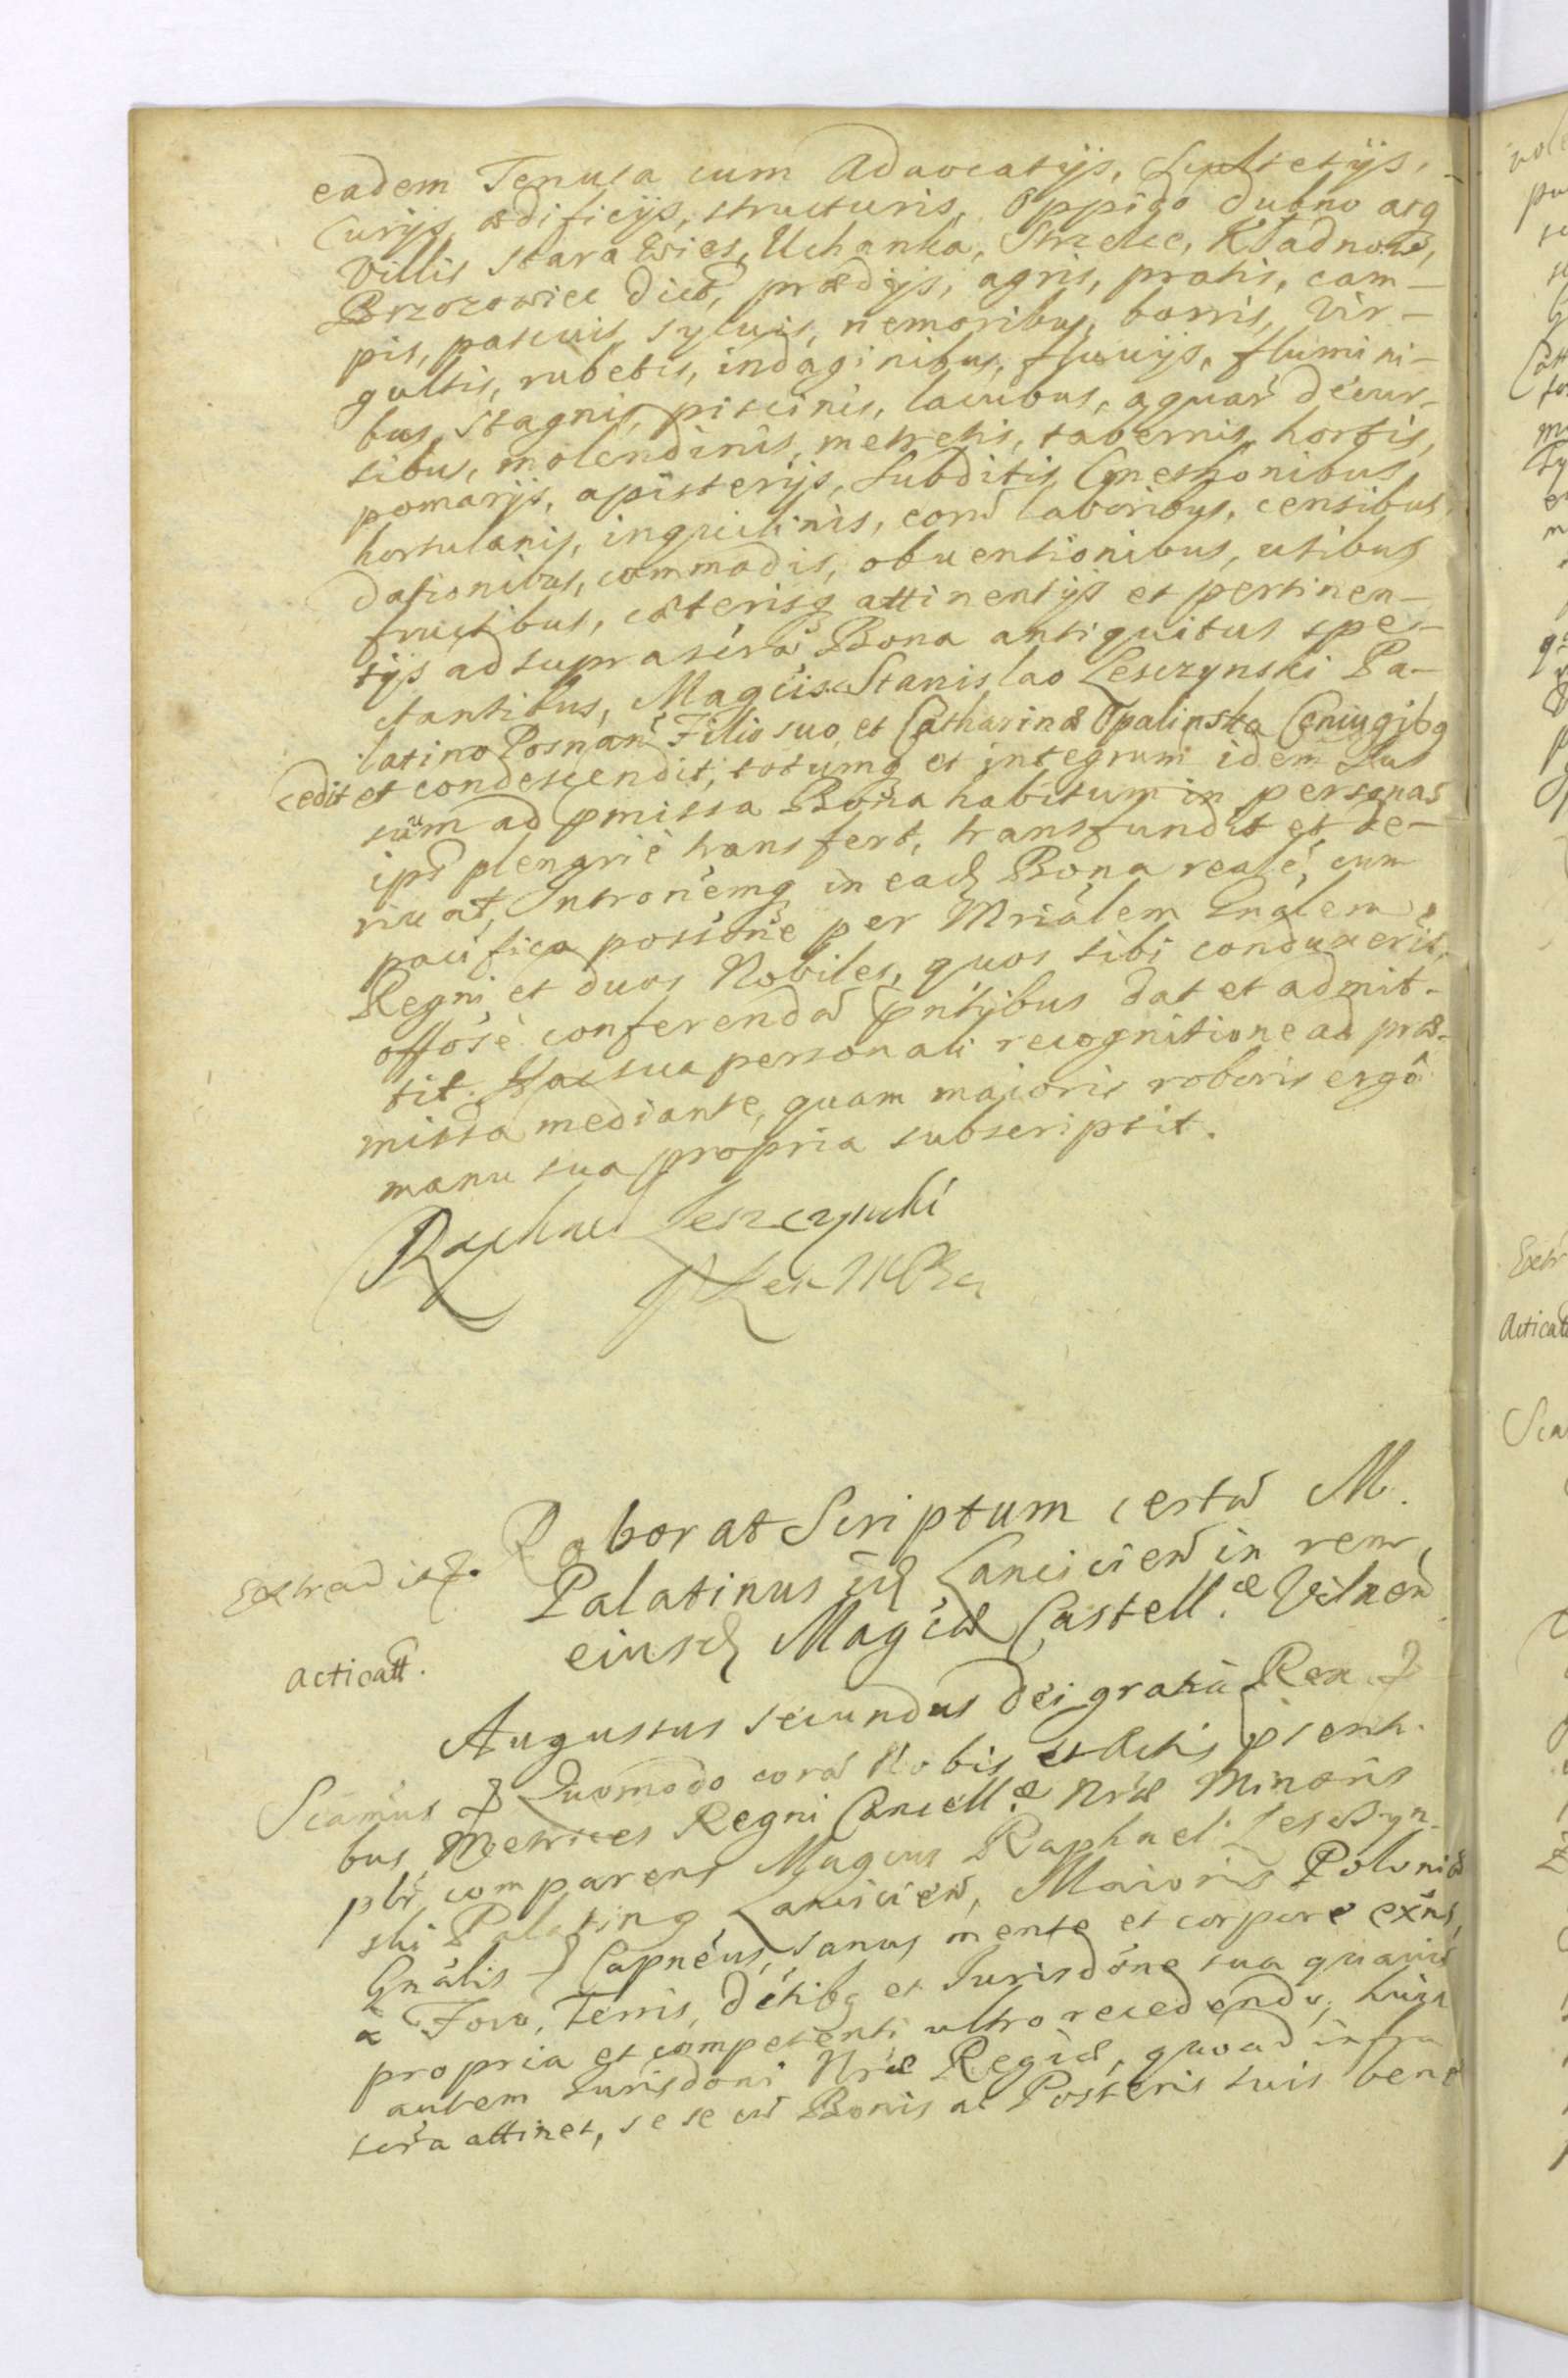 eadem Tenuta cum Advocatijs, Scultetijs,
Curijs ædificijs, structuris, Oppido Dubno atq
Villis Stara Wies, Uchanka, Strzelce, Kładnow,
Brzozowiec dict, prædijs, agris, pratis, cam-
pis, pascuis, sylvis, nemoribus, borris, Vir-
gultis, rubetis, indaginibus, fluvijs, flumini-
bus, Stagnis, piscinis, lacubus, aquar decur-
sibus, molendinis, metretis, tabernis, hortis,
pomarijs, apisterijs, Subditis, Cmethonibus,
hortulanis, inquilinis, eorū laboribus, censibus,
dationibus, commodis, obventionibus, utibus
fructibus, cæterisq attinentijs et pertinen-
tijs ad suprascr̃a Bona antiquitus spe-
ctantibus, Magcis Stanislao Lesczynski Pa-
latino Posnan Filio suo, et Catharinæ Opalinska Coniugibq
cedit et condescendit, totumq et integrum idem Ius
suum ad pmissa Bona habitum in personas
ipsr plenarie transfert, transfundit et de-
rivat, Intronemq in eadz Bona realē, cum
pacifica possione per Mrialem Gnalem
Regni et duos Nobiles, quos sibi conduxerit,
offose conferendā pntibus dat et admit-
tit. Hac sua personali recognitione ad præ-
missa mediante, quam maioris roboris ergô
manu sua propria subscripsit.
Raphael Leszczynski
Extradit.
Roborat Scriptum certū M.
Palatinus Lancicien in rem
eiusdz Magcæ Castell.æ Vilnen
Acticatt.
Augustus Secundus Dei gratiâ Rex
Scamus Quomodo corā Nobis et Actis psenti-
bus Metrices Regni Cancell.æ Nræ Minoris
pbr comparens Magcus Raphael Lesczyn-
ski Palatinq Lancicien, Maioris Poloniæ
Gnalis Capneus, sanus mente et corpore exñs,
a Foro, Terris, Dctibq et Jurisdōne sua quavis
propria et competenti ultro recedendo, huic
autem Jurisdoni Nræ Regiæ, quoad infra
scra attinet, se se cū Bonis ac Posteris suis bene